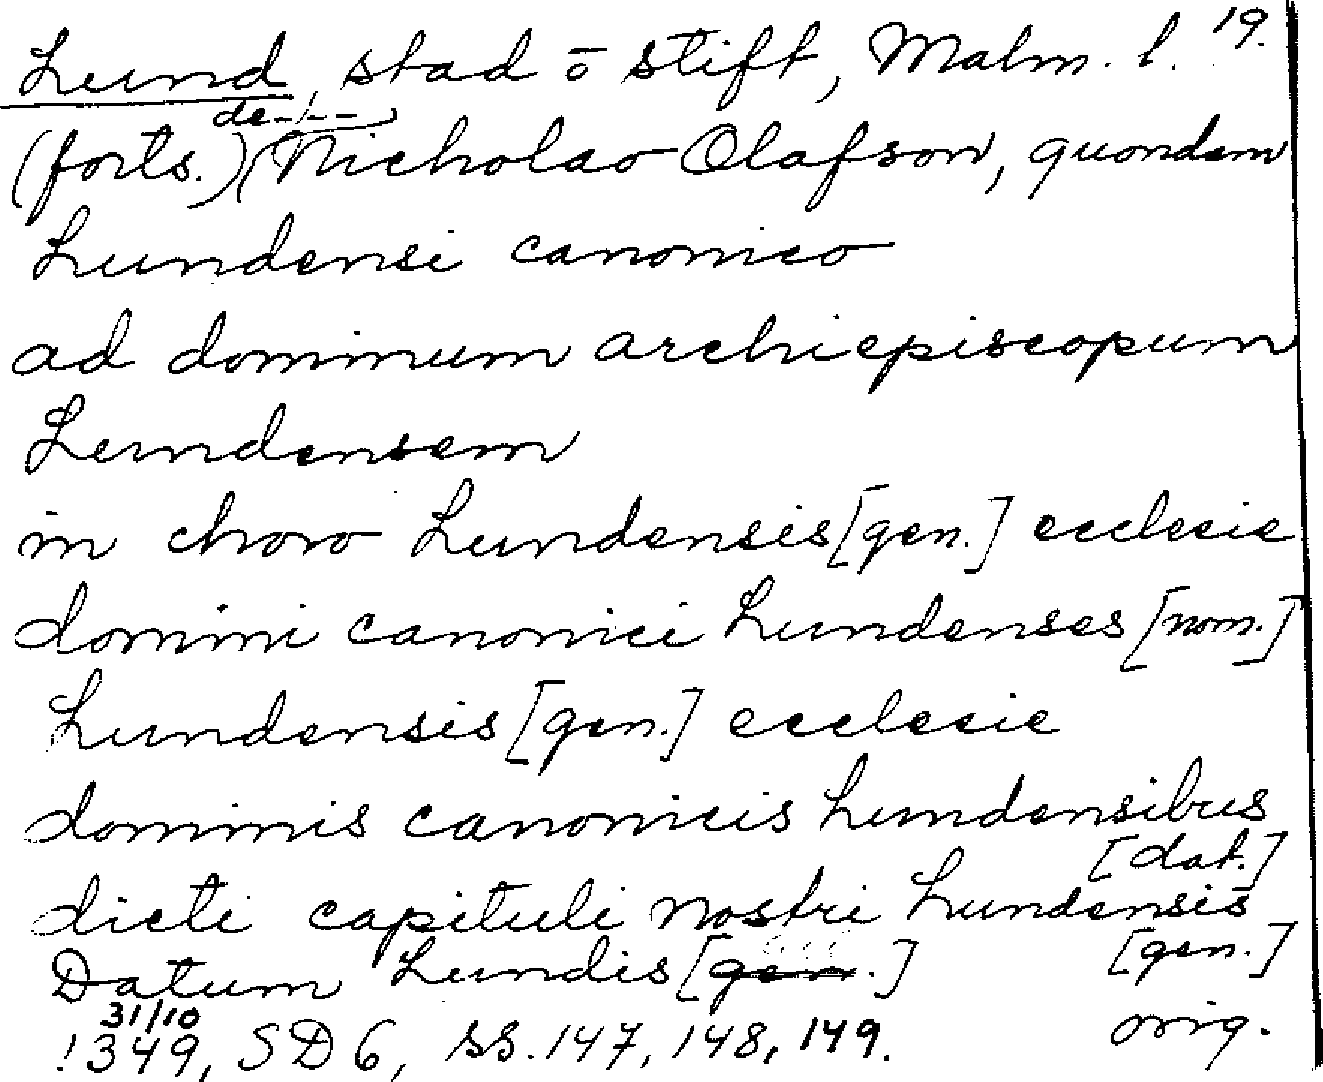 Lund, stad o stift, Malm. l. 19.
(forts.) (de - - -) Nicholao Olafson, quondam
Lundensi canonico
ad dominum archiepiscopum
Lundensem
in choro Lundensis [gen.] ecclesie
domini canonici Lundenses [nom.]
Lundensis [gen.] ecclesie
dominis canonicis Lundensibus
[dat.]
dicti capituli nostri Lundensis
[gen.]
Datum Lundis [gen.]
31/10
1349, SD 6, ss. 147, 148, 149. orig.